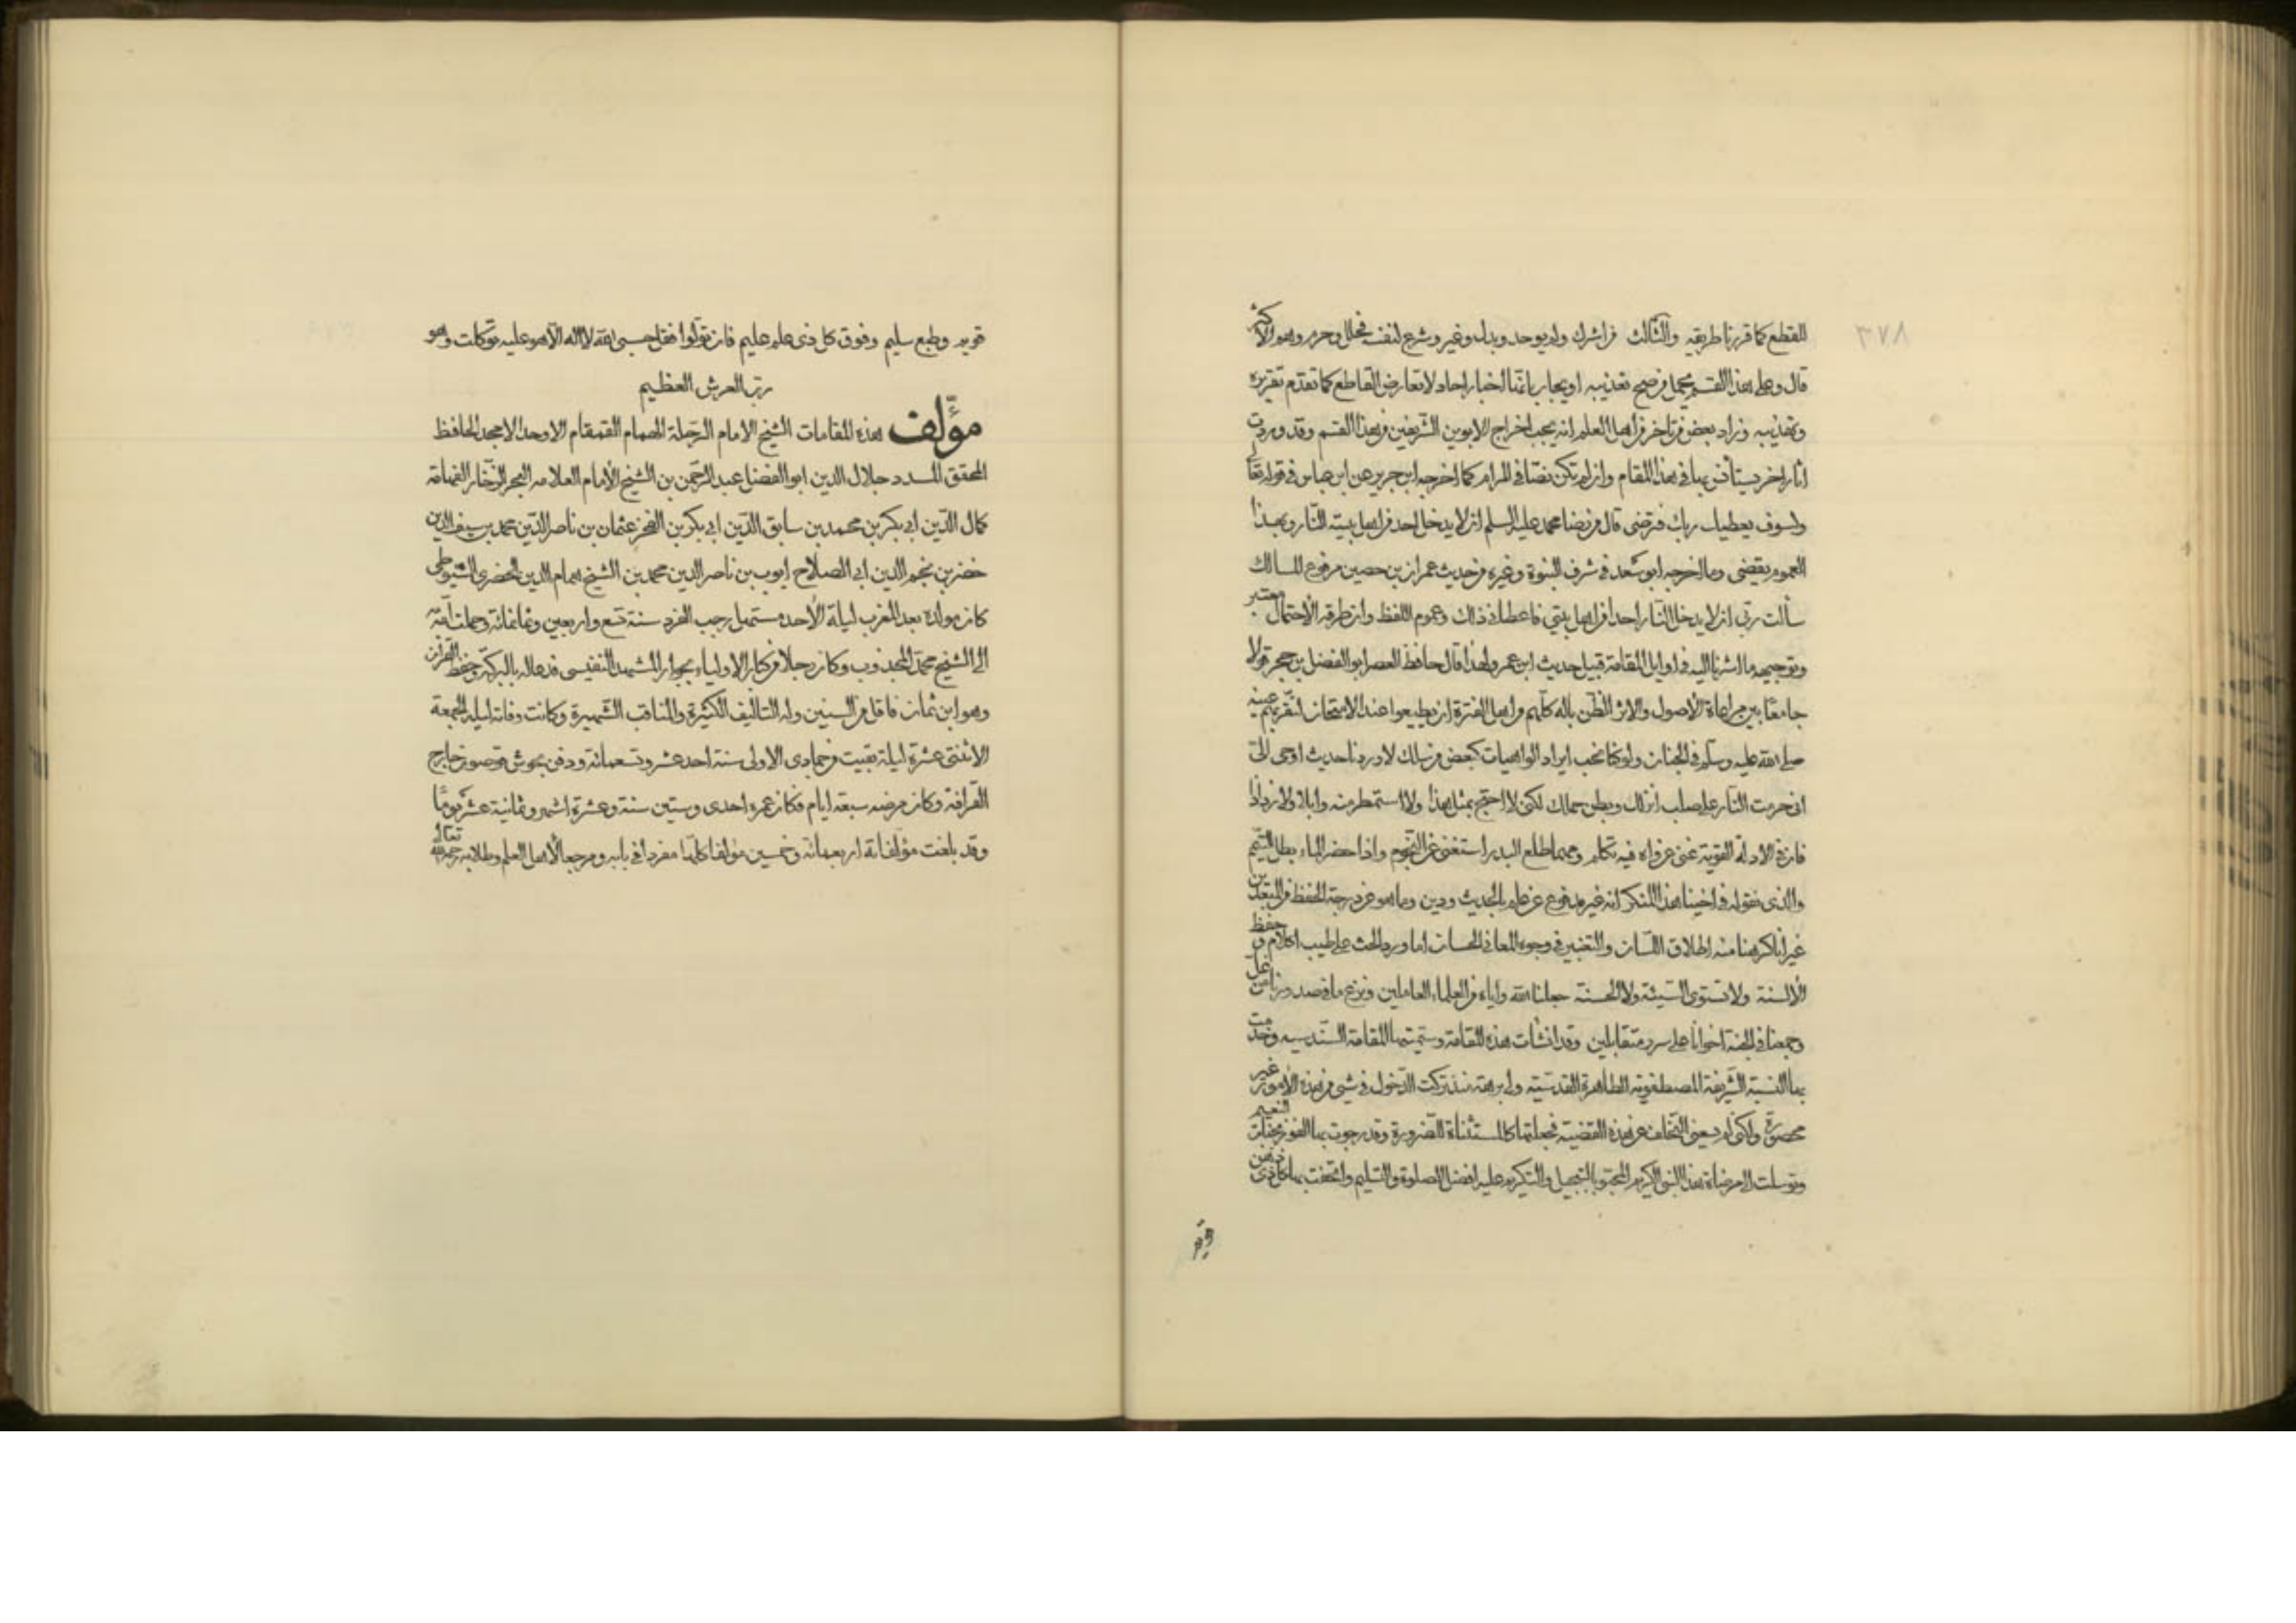 ٣٧٨
للقطع كما قررنا طريقه والثالث من اشرك ولم يوحد وبدل وغير وشرع لنفسه فحلل وحرم وهو الاكثر
قال وعلى هذا القسم يحمل من صح تعذيبه او يجاب بانها اخبار احاد لا تعارض القاطع كما تقدم تقريره
وتهذيبه وزاد بعض من تاخر من اهل العلم انه يجب اخراج الابوين الشريفين من هذا القسم وقد وردت
اثار اخر يستانس بها في هذا المقام وان لم تكن نصا في المرام كما اخرجه ابن جرير عن ابن عباس في قوله تعالى
ولسوف يعطيك ربك فترضى قال من رضا محمد عليه السلم ان لا يدخل احد من اهل بيته النار وبهذا
العموم يقضى وما اخرجه ابو سعد في شرف النبوة وغيره من حديث عمران بن حصين مرفوع المسالك
سألت ربي ان لا يدخل النار احدا من اهل بيتي فاعطاني ذلك وعموم اللفظ وان طرقه الاحتمال معتبر
وتوجيهه ما اشرنا اليه في اوايل المقامة قبيل حديث ابن عمر ولهذا قال حافظ العصر ابو الفضل بن حجر قولا
جامعا بين مراعاة الاصول والاثر الظن باله كلهم من اهل الفترة ان يطيعوا عند الامتحان لتقر بهم عينه
صلى الله عليه وسلم في الجنان ولو كنا نحب ايراد الواهيات كبعض من سلك لاوردنا حديث اوحى الى
اني حرمت النار على صلب انزلك وبطن حملك لكن لا احتج بمثل هذا ولا استمطر منه وابلا ولا رذاذا
فان في الادلة القوية غنى عن واه فيه تكلم ومهما طلع البدر استغنى عن النجوم واذا حضر الماء بطل التيمم
والذي نقوله في اخينا هذا المنكر انه غير مدفوع عن علم بالحديث ودين وما هو عن درجة الحفظ من المبعدين
غير انا كرهنا منه اطلاق اللسان والتغيير في وجوه المعاني الحسان اما ورد الحث على طيب الكلام وحفظ
الالسنة ولا تستوي السيئة ولا الحسنة جعلنا الله واياه من العلماء العاملين ونزع ما في صدورنا من غل
وجمعنا في الجنة اخوانا على سرر متقابلين وقد انشأت هذه المقامة وسميتها المقامة السندسيه وخدمت
بها النسبة الشريفة المصطفوية الطاهرة القدسية ولي برهة منذ تركت الدخول في شيء من هذه الامور غير
محصورة ولكن لم يسعني التخلف عن هذه القضية فجعلتها كالمستثناة للضرورة وقد رجوت بها الفوز بجنات النعيم
وتوسلت الى مرضاة هذا النبي الكريم المحبو بالتبجيل والتكريم عليه افضل الصلوة والتسليم واتحفت بها كل ذي ذهن
قويم
قويم وطبع سليم وفوق كل ذي علم عليم فان تولوا فقل حسبي الله لا اله الا هو عليه توكلت وهو
رب العرش العظيم
مؤلف هذه المقامات الشيخ الامام الرحلة الهمام القمقام الاوحد الامجد الحافظ
المحقق المسدد جلال الدين ابو الفضل عبد الرحمن بن الشيخ الامام العلامه البحر الزخار الفهامة
كمال الدين ابي بكر بن محمد بن سابق الدين ابي بكر بن الفخر عثمان بن ناصر الدين محمد بن سيف الدين
خضر بن نجم الدين ابي الصلاح ايوب بن ناصر الدين محمد بن الشيخ همام الدين الخضري السيوطي
كان مولده بعد المغرب ليلة الاحد مستهل رجب الفرد سنة تسع واربعين وثمانمائة وحملت امه
الى الشيخ محمد المجذوب وكان رجلا من كبار الاولياء بجوار المشهد النفيسي فدعا له بالبركة وحفظ القرآن
وهو ابن ثمان فاقل من السنين وله التاليف الكثيرة والمناقب الشهيرة وكانت وفاته ليلة الجمعة
الاثنتى عشرة ليلة بقيت من جمادى الاولى سنة احد عشر وتسعمائة ودفن بحوش قوصون خارج
القرافة وكان مرضه سبعة ايام فكان عمره احدى وستين سنة وعشرة اشهر وثمانية عشر يوما
وقد بلغت مؤلفاته اربعمائة وخمسين مؤلفا كلها مفردا في بابه ومرجعا لاهل العلم وطلابه رحمه الله تعالى